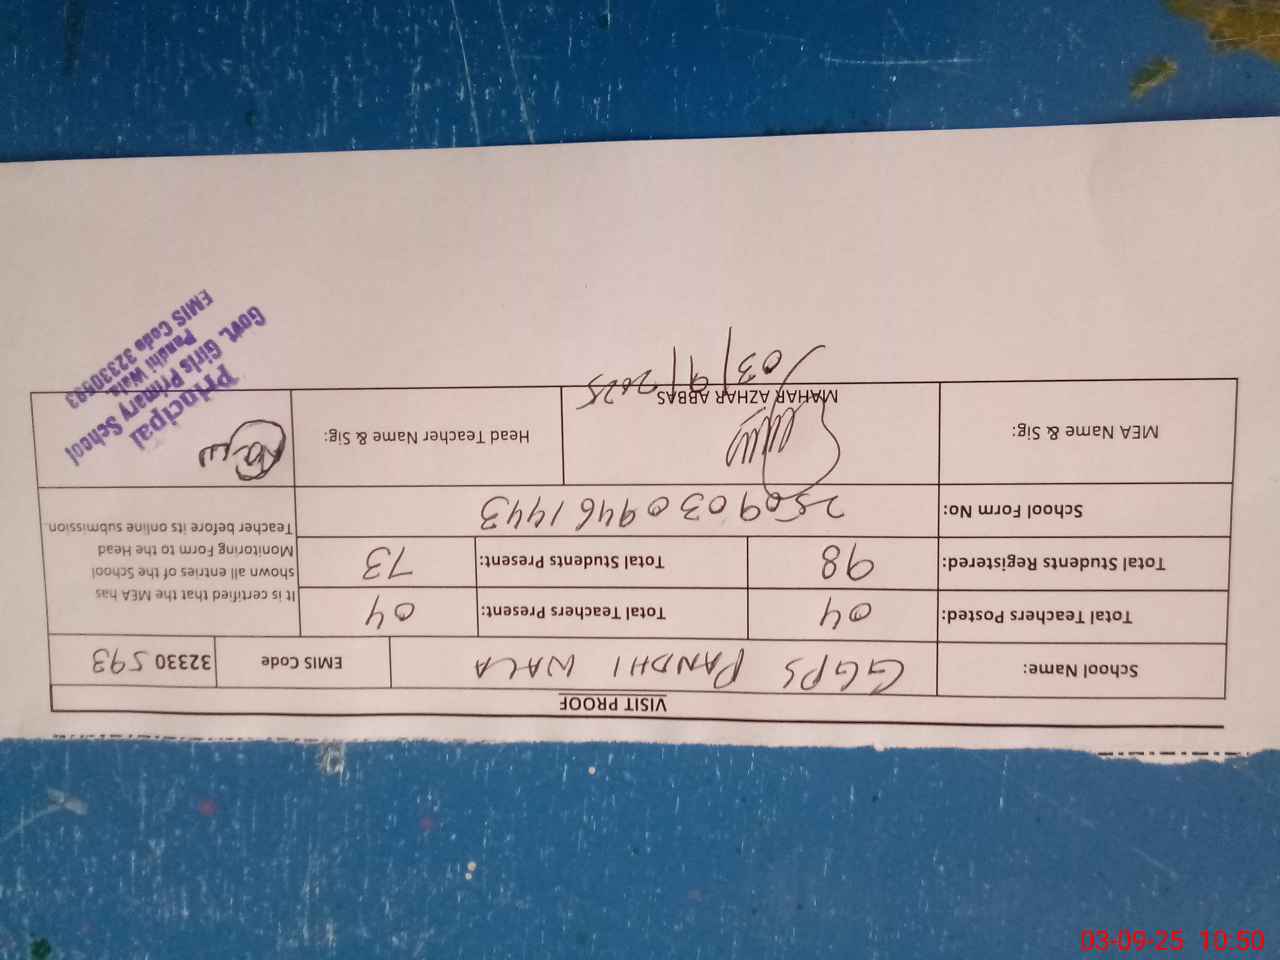 VISIT PROOF
School Name: GGPS PANDHI WALA EMIS Code 32330593
Total Teachers Posted: 04 Total Teachers Present: 04
It is certified that the MEA has shown all entries of the School Monitoring Form to the Head Teacher before its online submission
Total Students Registered: 98 Total Students Present: 73
School Form No: 25090309461443
MEA Name & Sig: MAHAR AZHAR ABBAS Head Teacher Name & Sig:
03/9/2025
Principal
Govt. Girls Primary School
Pandhi Wala
EMIS Code 32330593
03-09-25 10:50